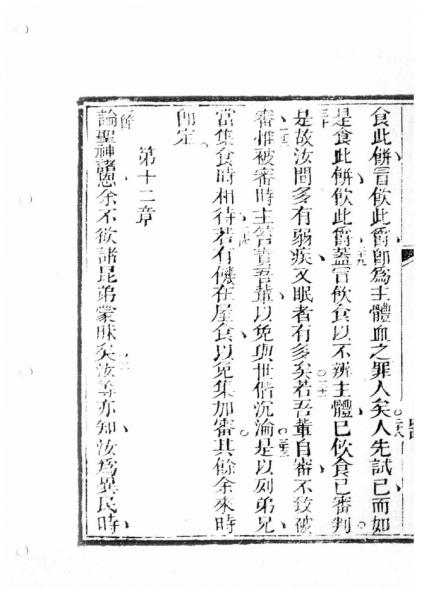 食此餅盲飲此爵即為主體血之罪人矣人先試己而如
是食此餅飲此爵蓋盲飲食以不辨主體己飲食己審判
是故汝間多有弱疾又眠者有多矣若吾輩自審不致被
審惟被審時主答責吾輩以免與世偕沉淪是以列弟兄
當集食時相待若有饑在屋食以免集加審其餘余來時
即定
第十二章
論聖神諸恩余不欲諸昆弟蒙昧矣汝等亦知汝為異民時